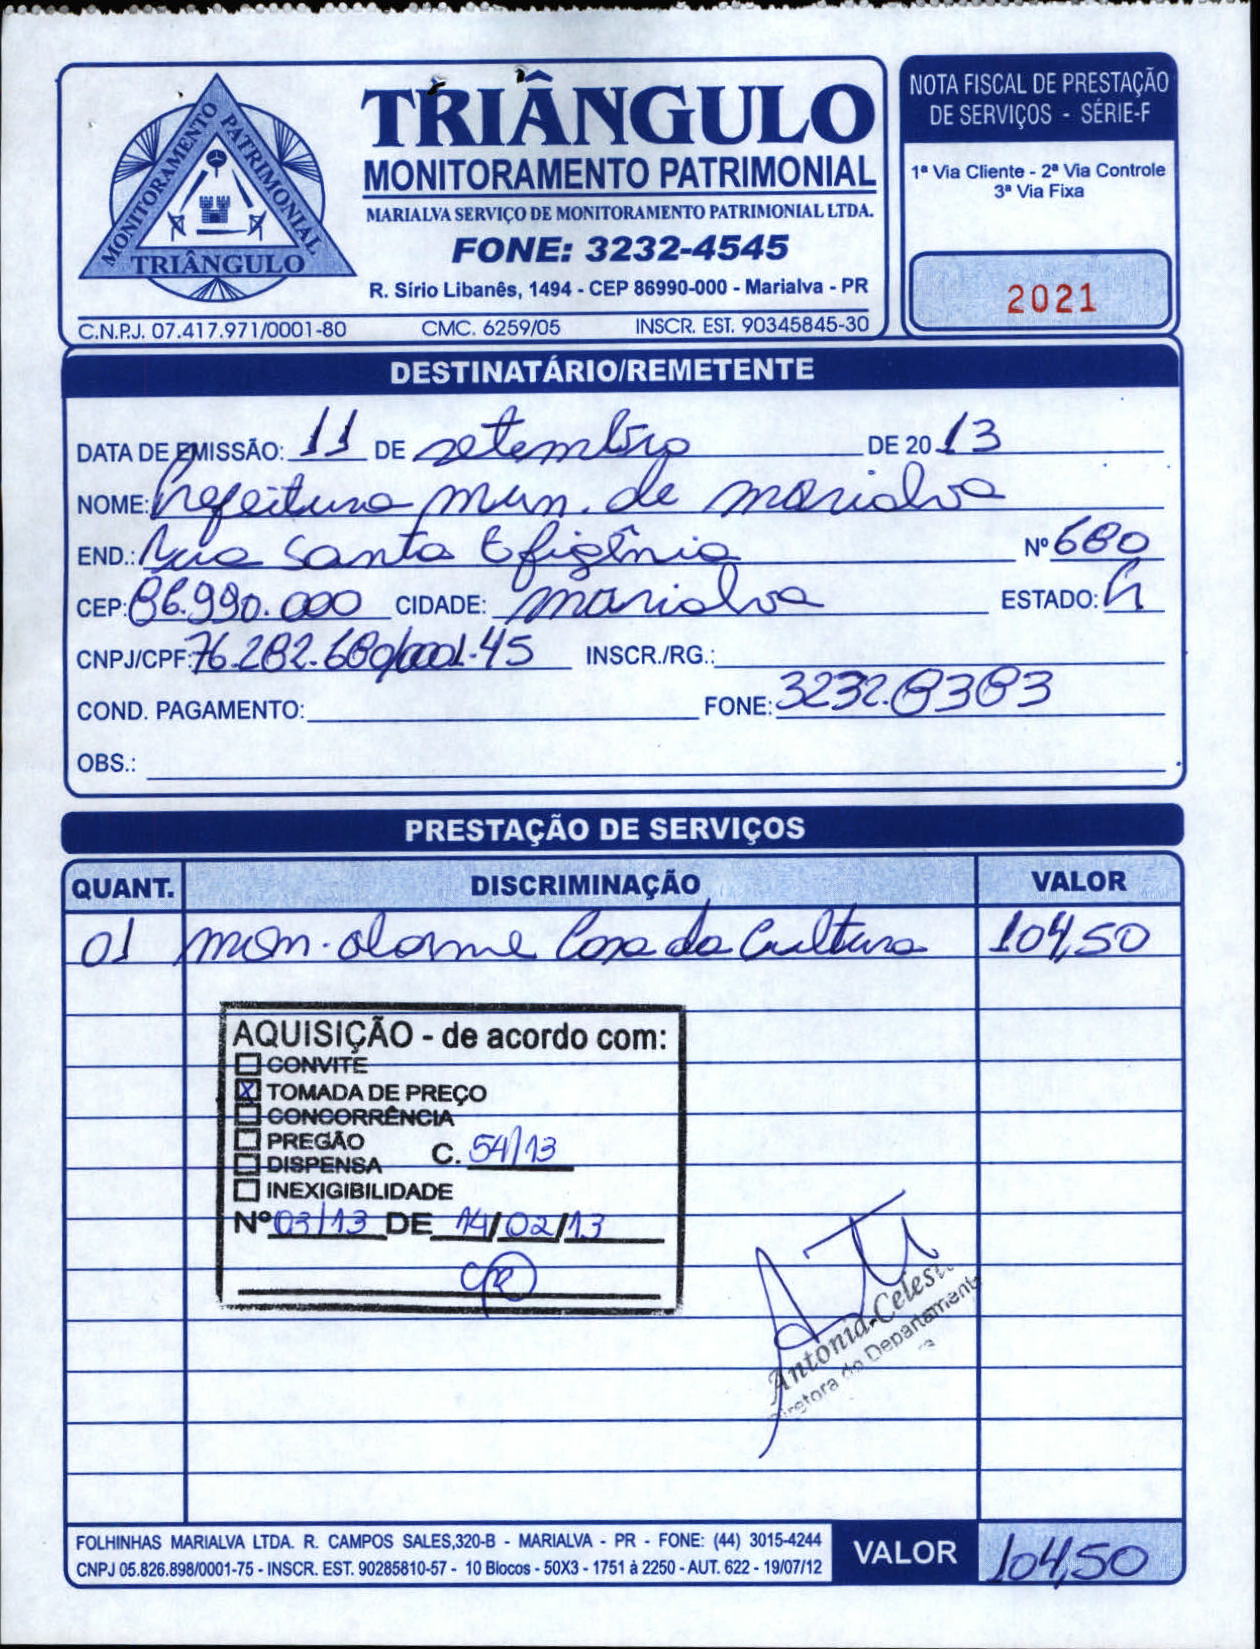 MONITORAMENTO PATRIMONIAL
TRIÂNGULO
TRIÂNGULO
MONITORAMENTO PATRIMONIAL
MARIALVA SERVIÇO DE MONITORAMENTO PATRIMONIAL LTDA.
FONE: 3232-4545
R. Sírio Libanês, 1494 - CEP 86990-000 - Marialva - PR
C.N.P.J. 07.417.971/0001-80 CMC. 6259/05 INSCR. EST. 90345845-30
NOTA FISCAL DE PRESTAÇÃO
DE SERVIÇOS - SÉRIE-F
1ª Via Cliente - 2ª Via Controle
3ª Via Fixa
2021
DESTINATÁRIO/REMETENTE
DATA DE EMISSÃO: 11 DE setembro DE 2013
NOME: Prefeitura Mun. de Marialva
END.: Rua Santa Efigênia Nº 680
CEP: 86.990.000 CIDADE: Marialva ESTADO: Pr
CNPJ/CPF: 76.282.680/0001-45 INSCR./RG.:
COND. PAGAMENTO: FONE: 3232.8383
OBS.:
PRESTAÇÃO DE SERVIÇOS
QUANT. DISCRIMINAÇÃO VALOR
01 mon. alarme Casa da Cultura 104,50
AQUISIÇÃO - de acordo com:
CONVITE
X TOMADA DE PREÇO
CONCORRÊNCIA
PREGÃO
C. 54/13
DISPENSA
INEXIGIBILIDADE
Nº 03/13 DE 14/02/13
Antonia Celest
Diretora do Departament
FOLHINHAS MARIALVA LTDA. R. CAMPOS SALES,320-B - MARIALVA - PR - FONE: (44) 3015-4244
CNPJ 05.826.898/0001-75 - INSCR. EST. 90285810-57 - 10 Blocos - 50X3 - 1751 à 2250 - AUT. 622 - 19/07/12
VALOR 104,50